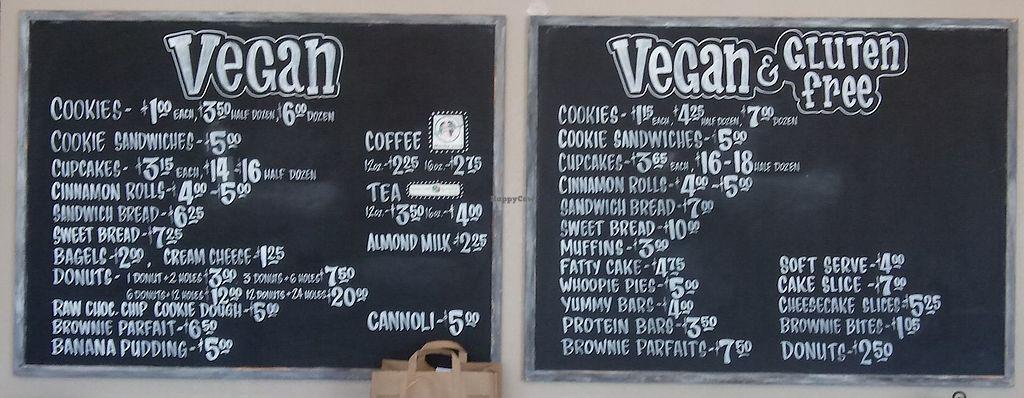 Vegan
COOKIES - $1.00 EACH, $3.50 HALF DOZEN, $6.00 DOZEN
COOKIE SANDWICHES - $5.00
CUPCAKES - $3.15 EACH, $14 - $16 HALF DOZEN
CINNAMON ROLLS - $4.00 - $5.00
SANDWICH BREAD - $6.25
SWEET BREAD - $7.25
BAGELS - $2.00, CREAM CHEESE - $1.25
DONUTS - 1 DONUT + 2 HOLES $3.00 3 DONUTS + 6 HOLES $7.50
6 DONUTS + 12 HOLES $12.00 12 DONUTS + 24 HOLES $20.00
RAW CHOC. CHIP COOKIE DOUGH - $5.00
BROWNIE PARFAIT - $6.50
BANANA PUDDING - $5.00
COFFEE
12oz. - $2.25 16oz. - $2.75
TEA
12oz. - $3.50 16oz. - $4.00
ALMOND MILK - $2.25
CANNOLI - $5.00
HappyCow
Vegan & Gluten free
COOKIES - $1.15 EACH, $4.25 HALF DOZEN, $7.00 DOZEN
COOKIE SANDWICHES - $5.00
CUPCAKES - $3.65 EACH, $16 - 18 HALF DOZEN
CINNAMON ROLLS - $4.00 - $5.00
SANDWICH BREAD - $7.00
SWEET BREAD - $10.00
MUFFINS - $3.00
FATTY CAKE - $4.75
WHOOPIE PIES - $5.00
YUMMY BARS - $4.00
PROTEIN BARS - $3.50
BROWNIE PARFAITS - $7.50
SOFT SERVE - $4.00
CAKE SLICE - $7.00
CHEESECAKE SLICES - $5.25
BROWNIE BITES - $1.05
DONUTS - $2.50